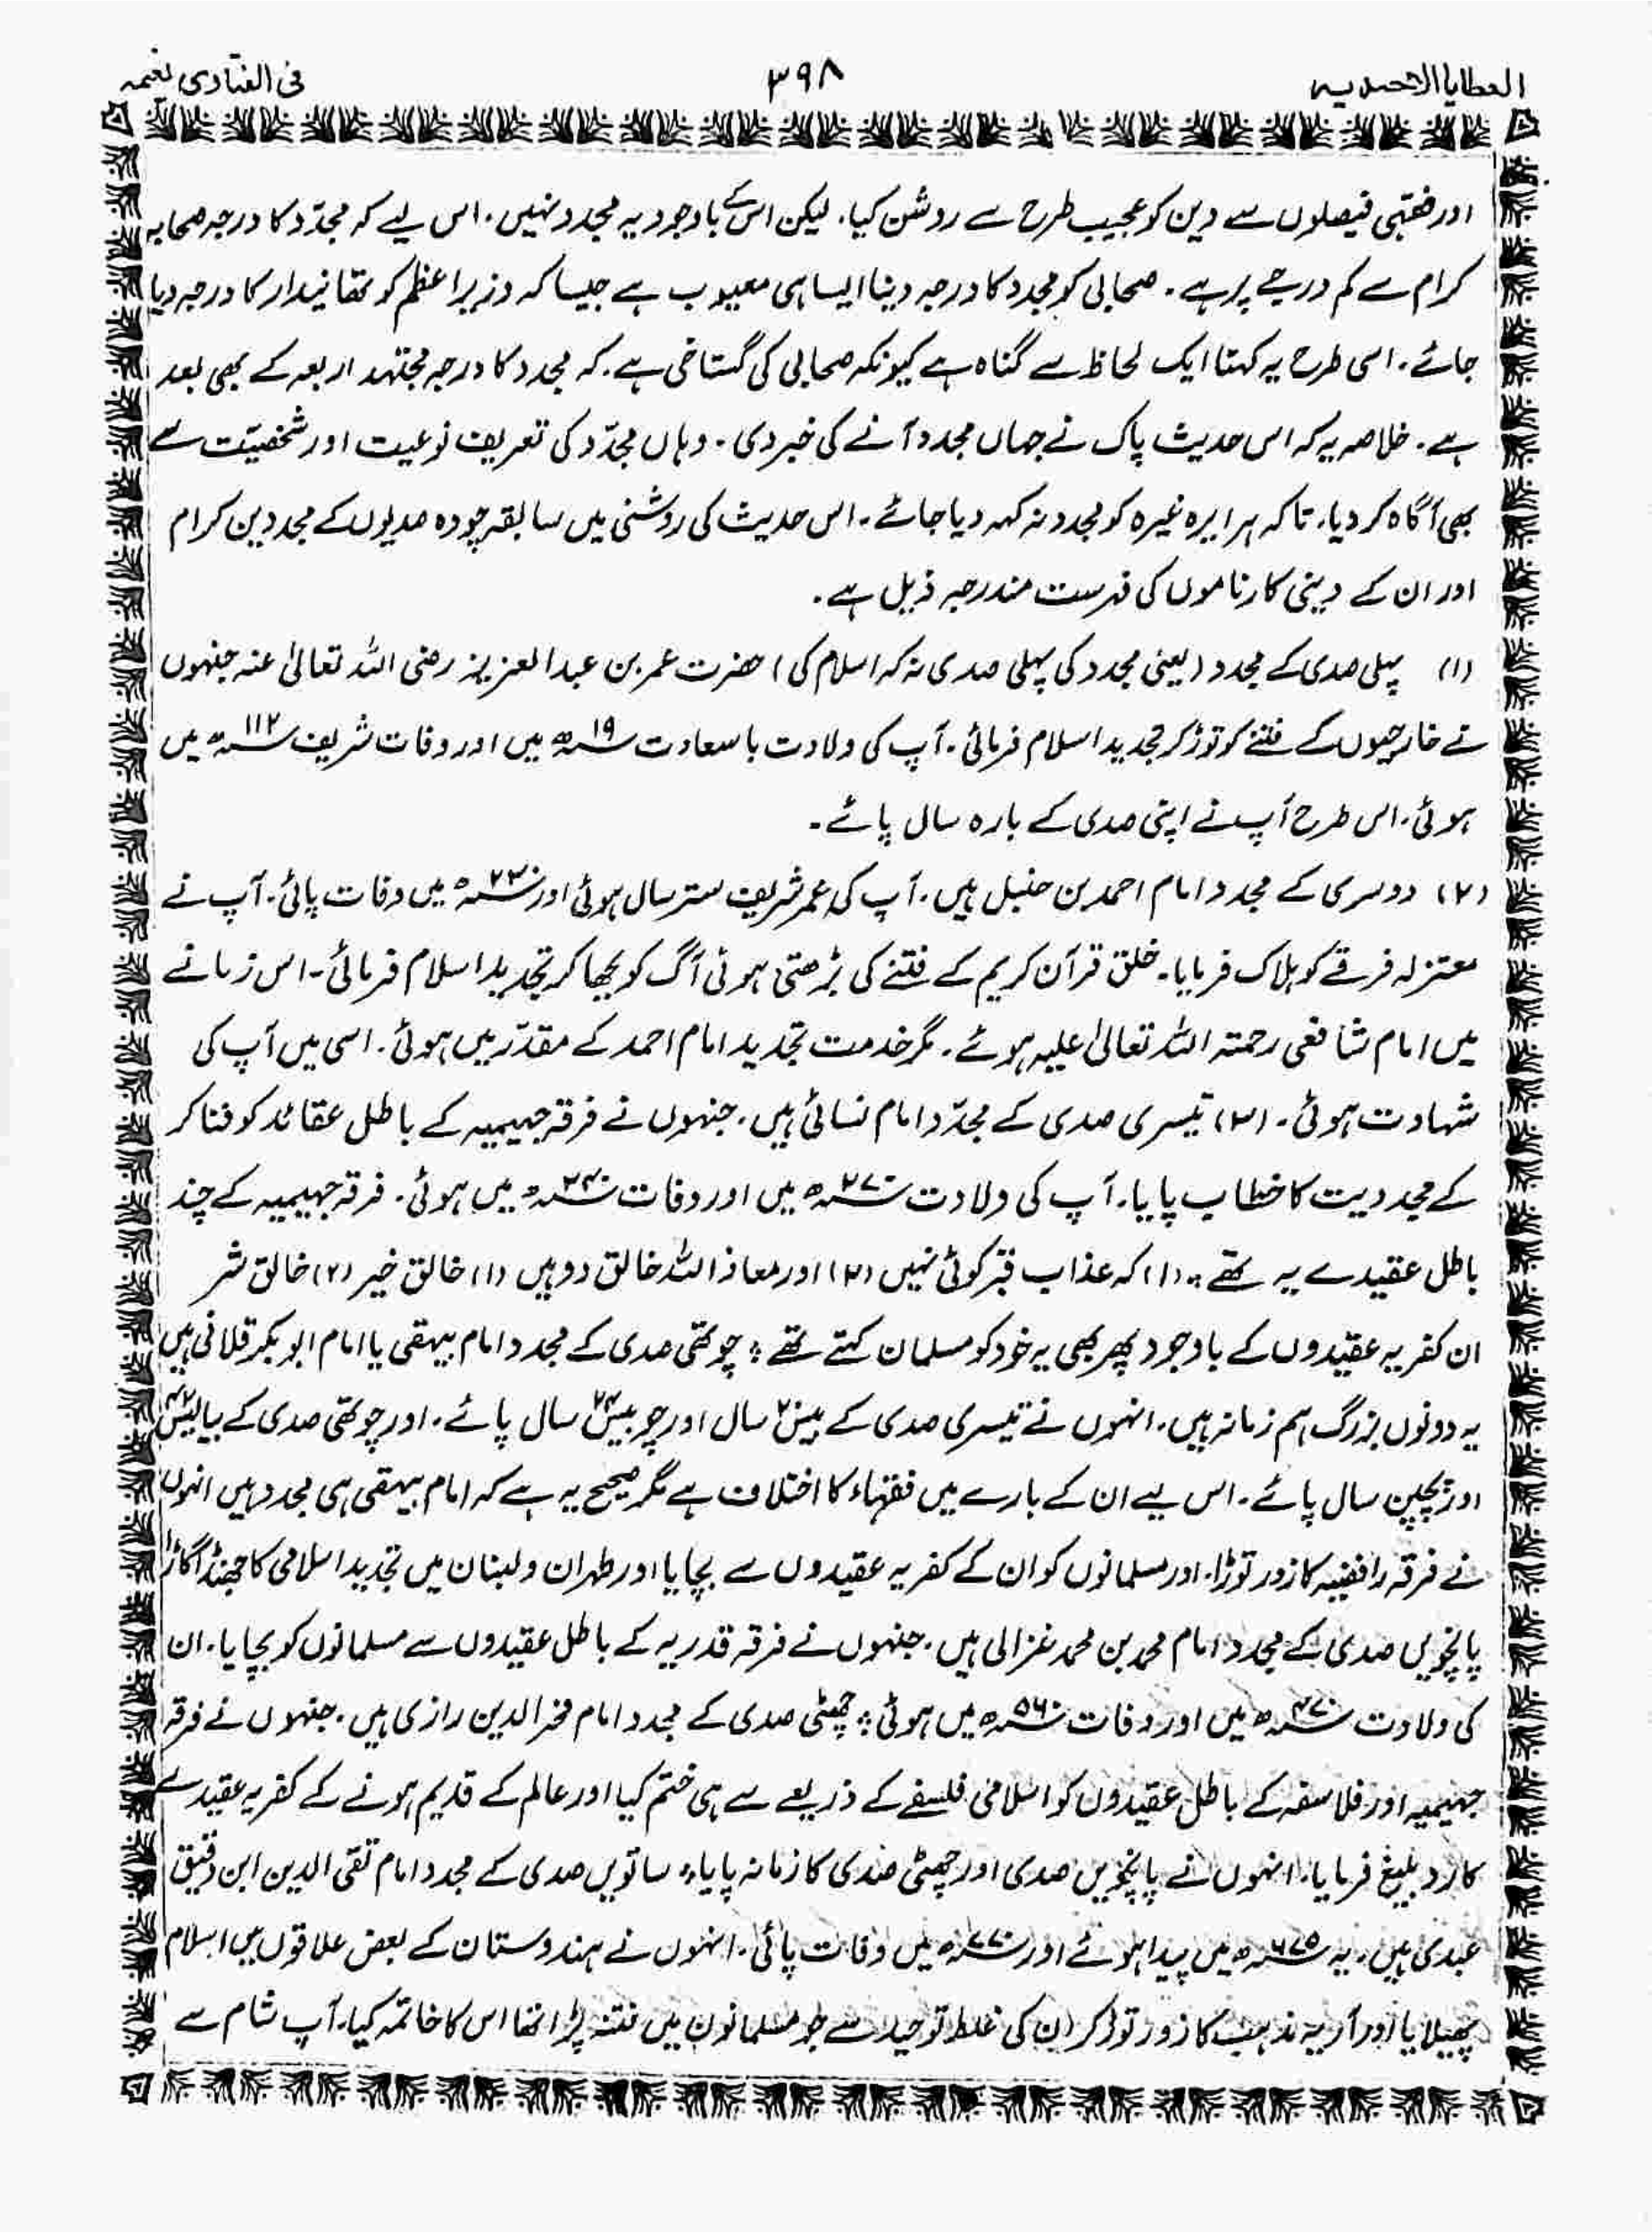 العطایا الاحمدیہ
۳۹۸
فی الفتاوی نعیمیہ
اور فقہی فیصلوں سے دین کو عجیب طرح سے روشن کیا۔ لیکن اس کے باوجود یہ مجدد نہیں۔ اس لیے کہ مجدّد کا درجہ صحابہ
کرام سے کم درجے پر ہے۔ صحابی کو مجدد کا درجہ دینا ایسا ہی معیوب ہے جیسا کہ وزیراعظم کو تھانیدار کا درجہ دیا
جائے۔ اسی طرح یہ کہنا ایک لحاظ سے گناہ ہے کیونکہ صحابی کی گستاخی ہے۔ کہ مجدد کا درجہ مجتہد اربعہ کے بھی بعد
ہے۔ خلاصہ یہ کہ اس حدیث پاک نے جہاں مجدد آنے کی خبر دی۔ وہاں مجدّد کی تعریف نوعیت اور شخصیّت سے
بھی آگاہ کر دیا۔ تاکہ ہر ایرہ غیرہ کو مجدد نہ کہہ دیا جائے۔ اس حدیث کی روشنی میں سابقہ چودہ صدیوں کے مجددین کرام
اور ان کے دینی کارناموں کی فہرست مندرجہ ذیل ہے۔
(۱) پہلی صدی کے مجدد (یعنی مجدد کی پہلی صدی نہ کہ اسلام کی) حضرت عمر بن عبدالعزیز رضی اللہ تعالیٰ عنہ جنہوں
نے خارجیوں کے فتنے کو توڑ کر تجدید اسلام فرمائی۔ آپ کی ولادت باسعادت ۱۹ھ میں اور وفات شریف ۱۱۲ھ میں
ہوئی۔ اس طرح آپ نے اپنی صدی کے بارہ سال پائے۔
(۲) دوسری کے مجدد امام احمد بن حنبل ہیں۔ آپ کی عمر شریف ستر سال ہوئی اور ۲۳۰ھ میں وفات پائی۔ آپ نے
معتزلہ فرقے کو ہلاک فرمایا۔ خلق قرآن کریم کے فتنے کی بڑھتی ہوئی آگ کو بجھا کر تجدید اسلام فرمائی۔ اس زمانے
میں امام شافعی رحمتہ اللہ تعالیٰ علیہ ہوئے۔ مگر خدمت تجدید امام احمد کے مقدّر میں ہوئی۔ اسی میں آپ کی
شہادت ہوئی۔ (۳) تیسری صدی کے مجدّد امام نسائی ہیں۔ جنہوں نے فرقہ جہیمیہ کے باطل عقائد کو فنا کر
کے مجددیت کا خطاب پایا۔ آپ کی ولادت ۲۷۰ھ میں اور وفات ۳۴۰ھ میں ہوئی۔ فرقہ جہیمیہ کے چند
باطل عقیدے یہ تھے۔ (۱) کہ عذاب قبر کوئی نہیں (۲) اور معاذ اللہ خالق دو ہیں (۱) خالق خیر (۲) خالق شر
ان کفریہ عقیدوں کے باوجود پھر بھی یہ خود کو مسلمان کہتے تھے ؞ چوتھی صدی کے مجدد امام بیہقی یا امام ابوبکر قلانی ہیں
یہ دونوں بزرگ ہم زمانہ ہیں۔ انہوں نے تیسری صدی کے بیس۲۰ سال اور چوبیس۲۴ سال پائے۔ اور چوتھی صدی کے بیالیس۴۲
اور پچپن سال پائے۔ اس لیے ان کے بارے میں فقہاء کا اختلاف ہے مگر صحیح یہ ہے کہ امام بیہقی ہی مجدد ہیں انہوں
نے فرقہ رافضیہ کا زور توڑا۔ اور مسلمانوں کو ان کے کفریہ عقیدوں سے بچایا اور طہران و لبنان میں تجدید اسلامی کا جھنڈا گاڑا
پانچویں صدی کے مجدد امام محمد بن محمد غزالی ہیں۔ جنہوں نے فرقہ قدریہ کے باطل عقیدوں سے مسلمانوں کو بچایا۔ ان
کی ولادت ۴۷۰ھ میں اور وفات ۵۶۰ھ میں ہوئی ؞ چھٹی صدی کے مجدد امام فخر الدین رازی ہیں۔ جنہوں نے فرقہ
جہیمیہ اور فلاسفہ کے باطل عقیدوں کو اسلامی فلسفے کے ذریعے سے ہی ختم کیا اور عالم کے قدیم ہونے کے کفریہ عقیدے
کا رد بلیغ فرمایا۔ انہوں نے پانچویں صدی اور چھٹی صدی کا زمانہ پایا۔ ساتویں صدی کے مجدد امام تقی الدین ابن دقیق
عبدی ہیں۔ یہ ۶۷۵ھ میں پیدا ہوئے اور ۷۷۰ھ میں وفات پائی۔ انہوں نے ہندوستان کے بعض علاقوں میں اسلام
پھیلایا اور آریہ مذہب کا زور توڑ کر ان کی غلط توحید سے جو مسلمانوں میں فتنہ پڑا تھا اس کا خاتمہ کیا۔ آپ شام سے